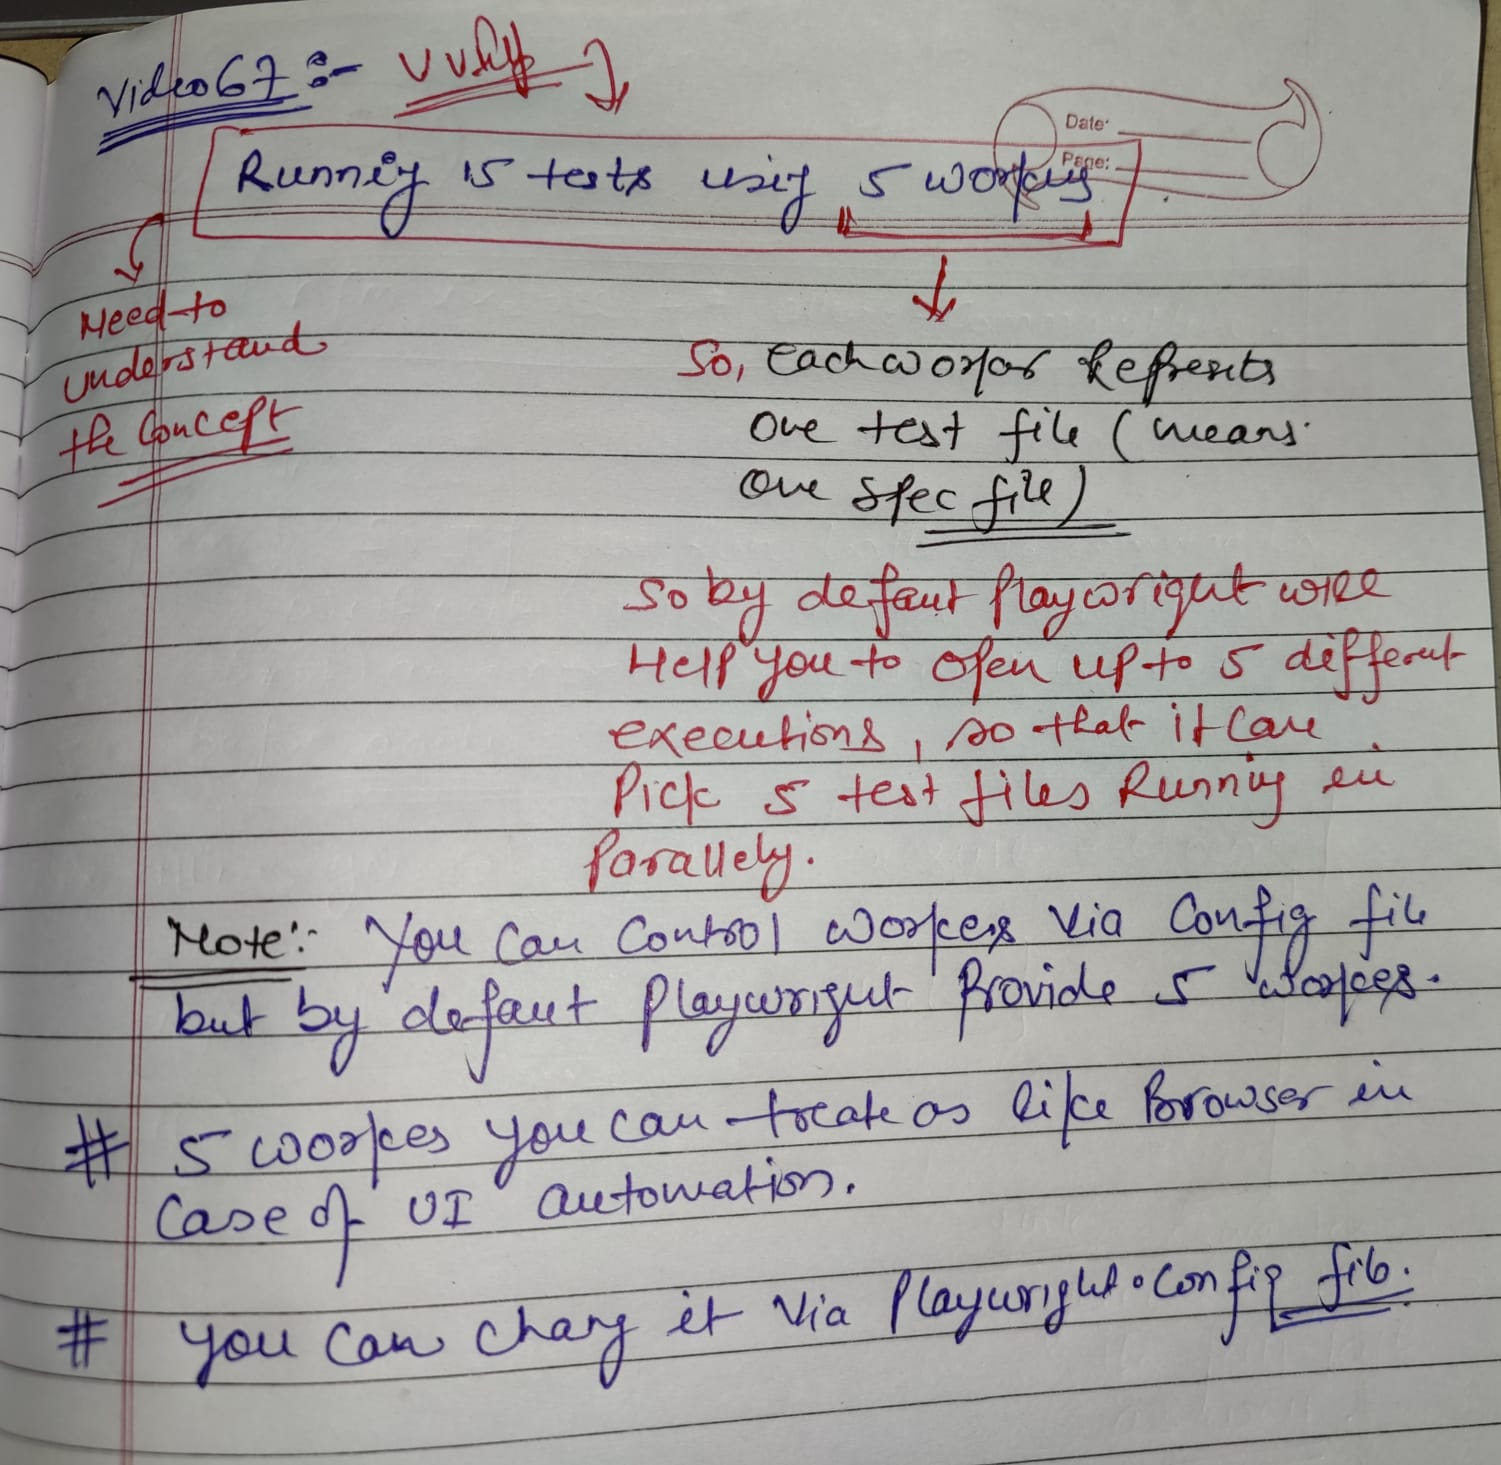 Video 67 :-
Date:
Page:
Running 15 tests using 5 workers
Need to
understand
the Concept
So, Each worker Represents
One test file (means
One Spec file)
So by defaut Playwright will
Help you to open up to 5 different
executions, so that it Can
Pick 5 test files Running in
Parallely.
Note:- You Can Control workers Via Config file
but by defaut Playwright Provide 5 workers.
# 5 workes you can treate as like Browser in
Case of UI automation.
# you Can chang it Via Playwright.Config file.